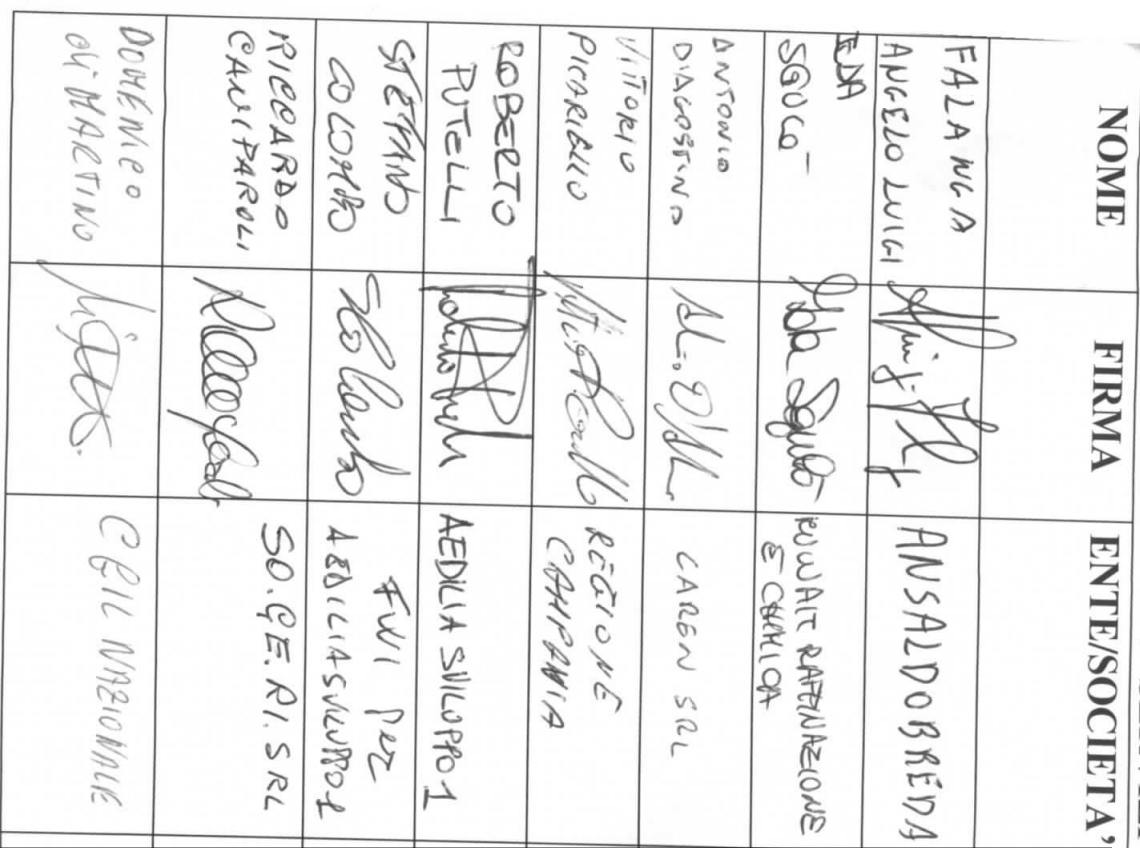 NOME FIRMA ENTE/SOCIETA'
FALANGA
ANGELO LUIGI
ANSALDOBREDA
IDA
SGUEO
KUWAIT RAFFINAZIONE
E CHIMICA
ANTONIO
D'AGOSTINO
CAREN SRL
VITTORIO
PICARIELLO
REGIONE
CAMPANIA
ROBERTO
PUTELLI
AEDILIA SVILUPPO 1
STEFANO
COLOMBO
FWI PER
AEDILIA SVILUPPO 1
RICCARDO
CAMPAROLI
SO.GE.RI. SRL
DOMENICO
DI MARTINO
CGIL NAZIONALE